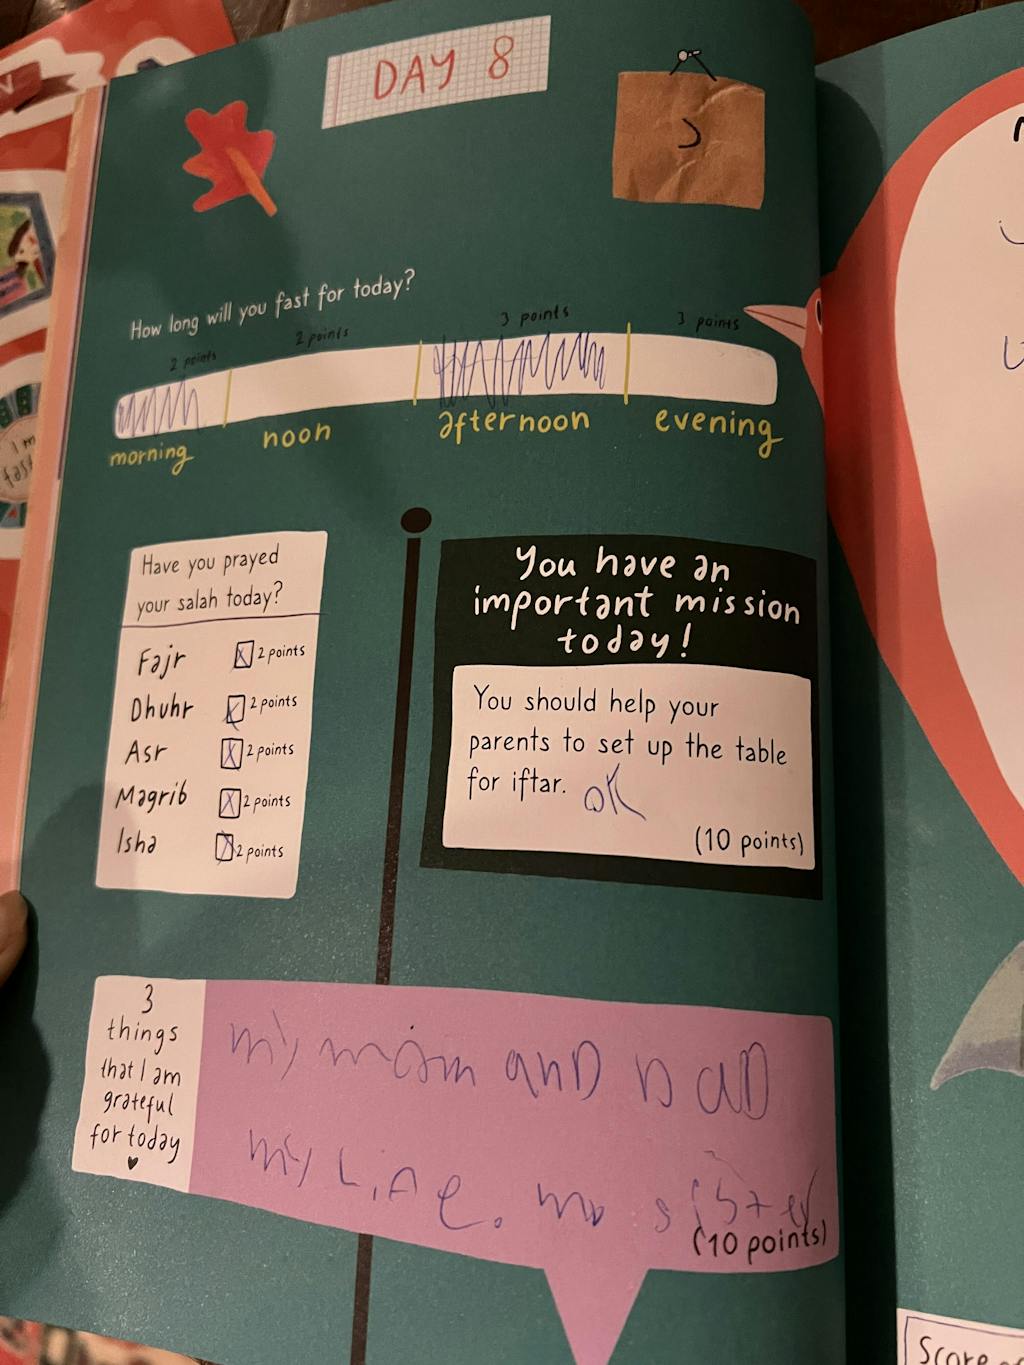 DAY 8
How long will you fast for today?
2 points
2 points
3 points
3 points
morning
noon
afternoon
evening
Have you prayed
your salah today?
Fajr 2 points
Dhuhr 2 points
Asr 2 points
Magrib 2 points
Isha 2 points
You have an
important mission
today!
You should help your
parents to set up the table
for iftar. OK
(10 points)
3
things
that I am
grateful
for today
my mom and DaD
my Life. my sister
(10 points)